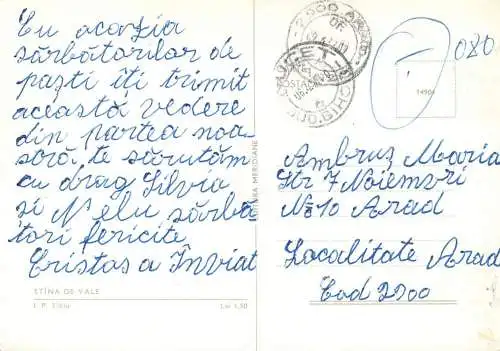 Cu ocazia
sărbătorilor de
paști îți trimit
această vedere
din partea noa-
sără, te sărutăm
cu drag Silvia
și Nelu sărbă
tori fericite
Cristos a Înviat
STÎNA DE VALE
Lei 1,50
MERIDIANE
080
Ambruș Maria
Str 7 Noiemvri
No 10 Arad
Localitate Arad
Cod 2900